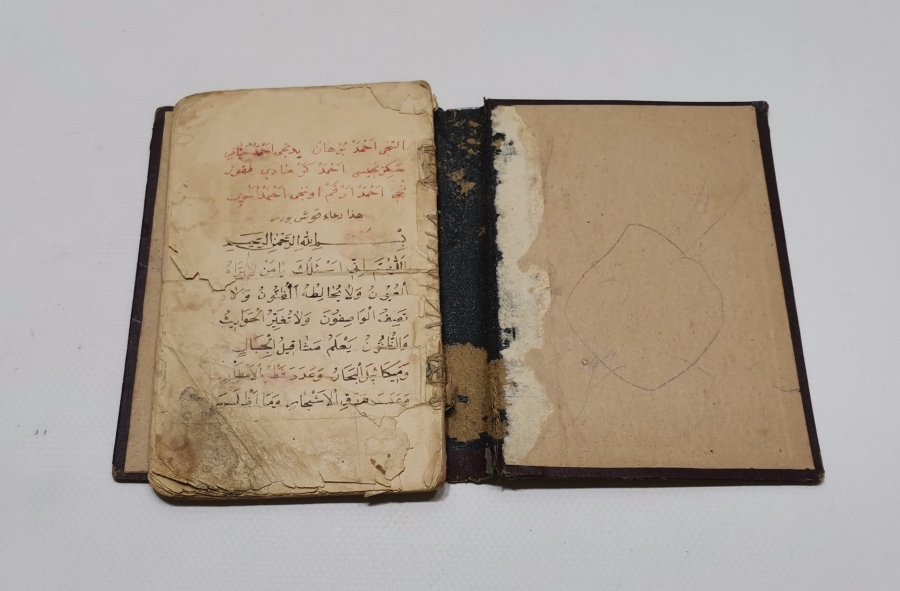 النجى اَحْمَدْ بُرْهان يدنجى اَحْمَدْ
اَحْمَدْ
نجى اَحْمَدْ اَرْقَمْ اوننجى اَحْمَدْ
هذا دعاء قوش بودر
بسم الله الرحمن الرحيم
اَللّٰهُمَّ اِنّى اَسْئَلُكَ يا مَنْ لا تَرَاهُ
الْعُيُونُ وَلَا يُخَالِطُهُ الظُّنُونُ وَلَا
تَصِفُ الْوَاصِفُونَ وَلَا تُغَيِّرُ الْحَوَادِثُ
وَالظُّنُونُ يَعْلَمُ مَثَاقِيلَ الْجِبَالِ
وَمِيكَائِيلَ الْبِحَارِ وَعَدَدَ قَطْرِ الْاَمْطَارِ
وَعَدَدَ وَرَقِ الْاَشْجَارِ وَمَا اَظْلَمَ